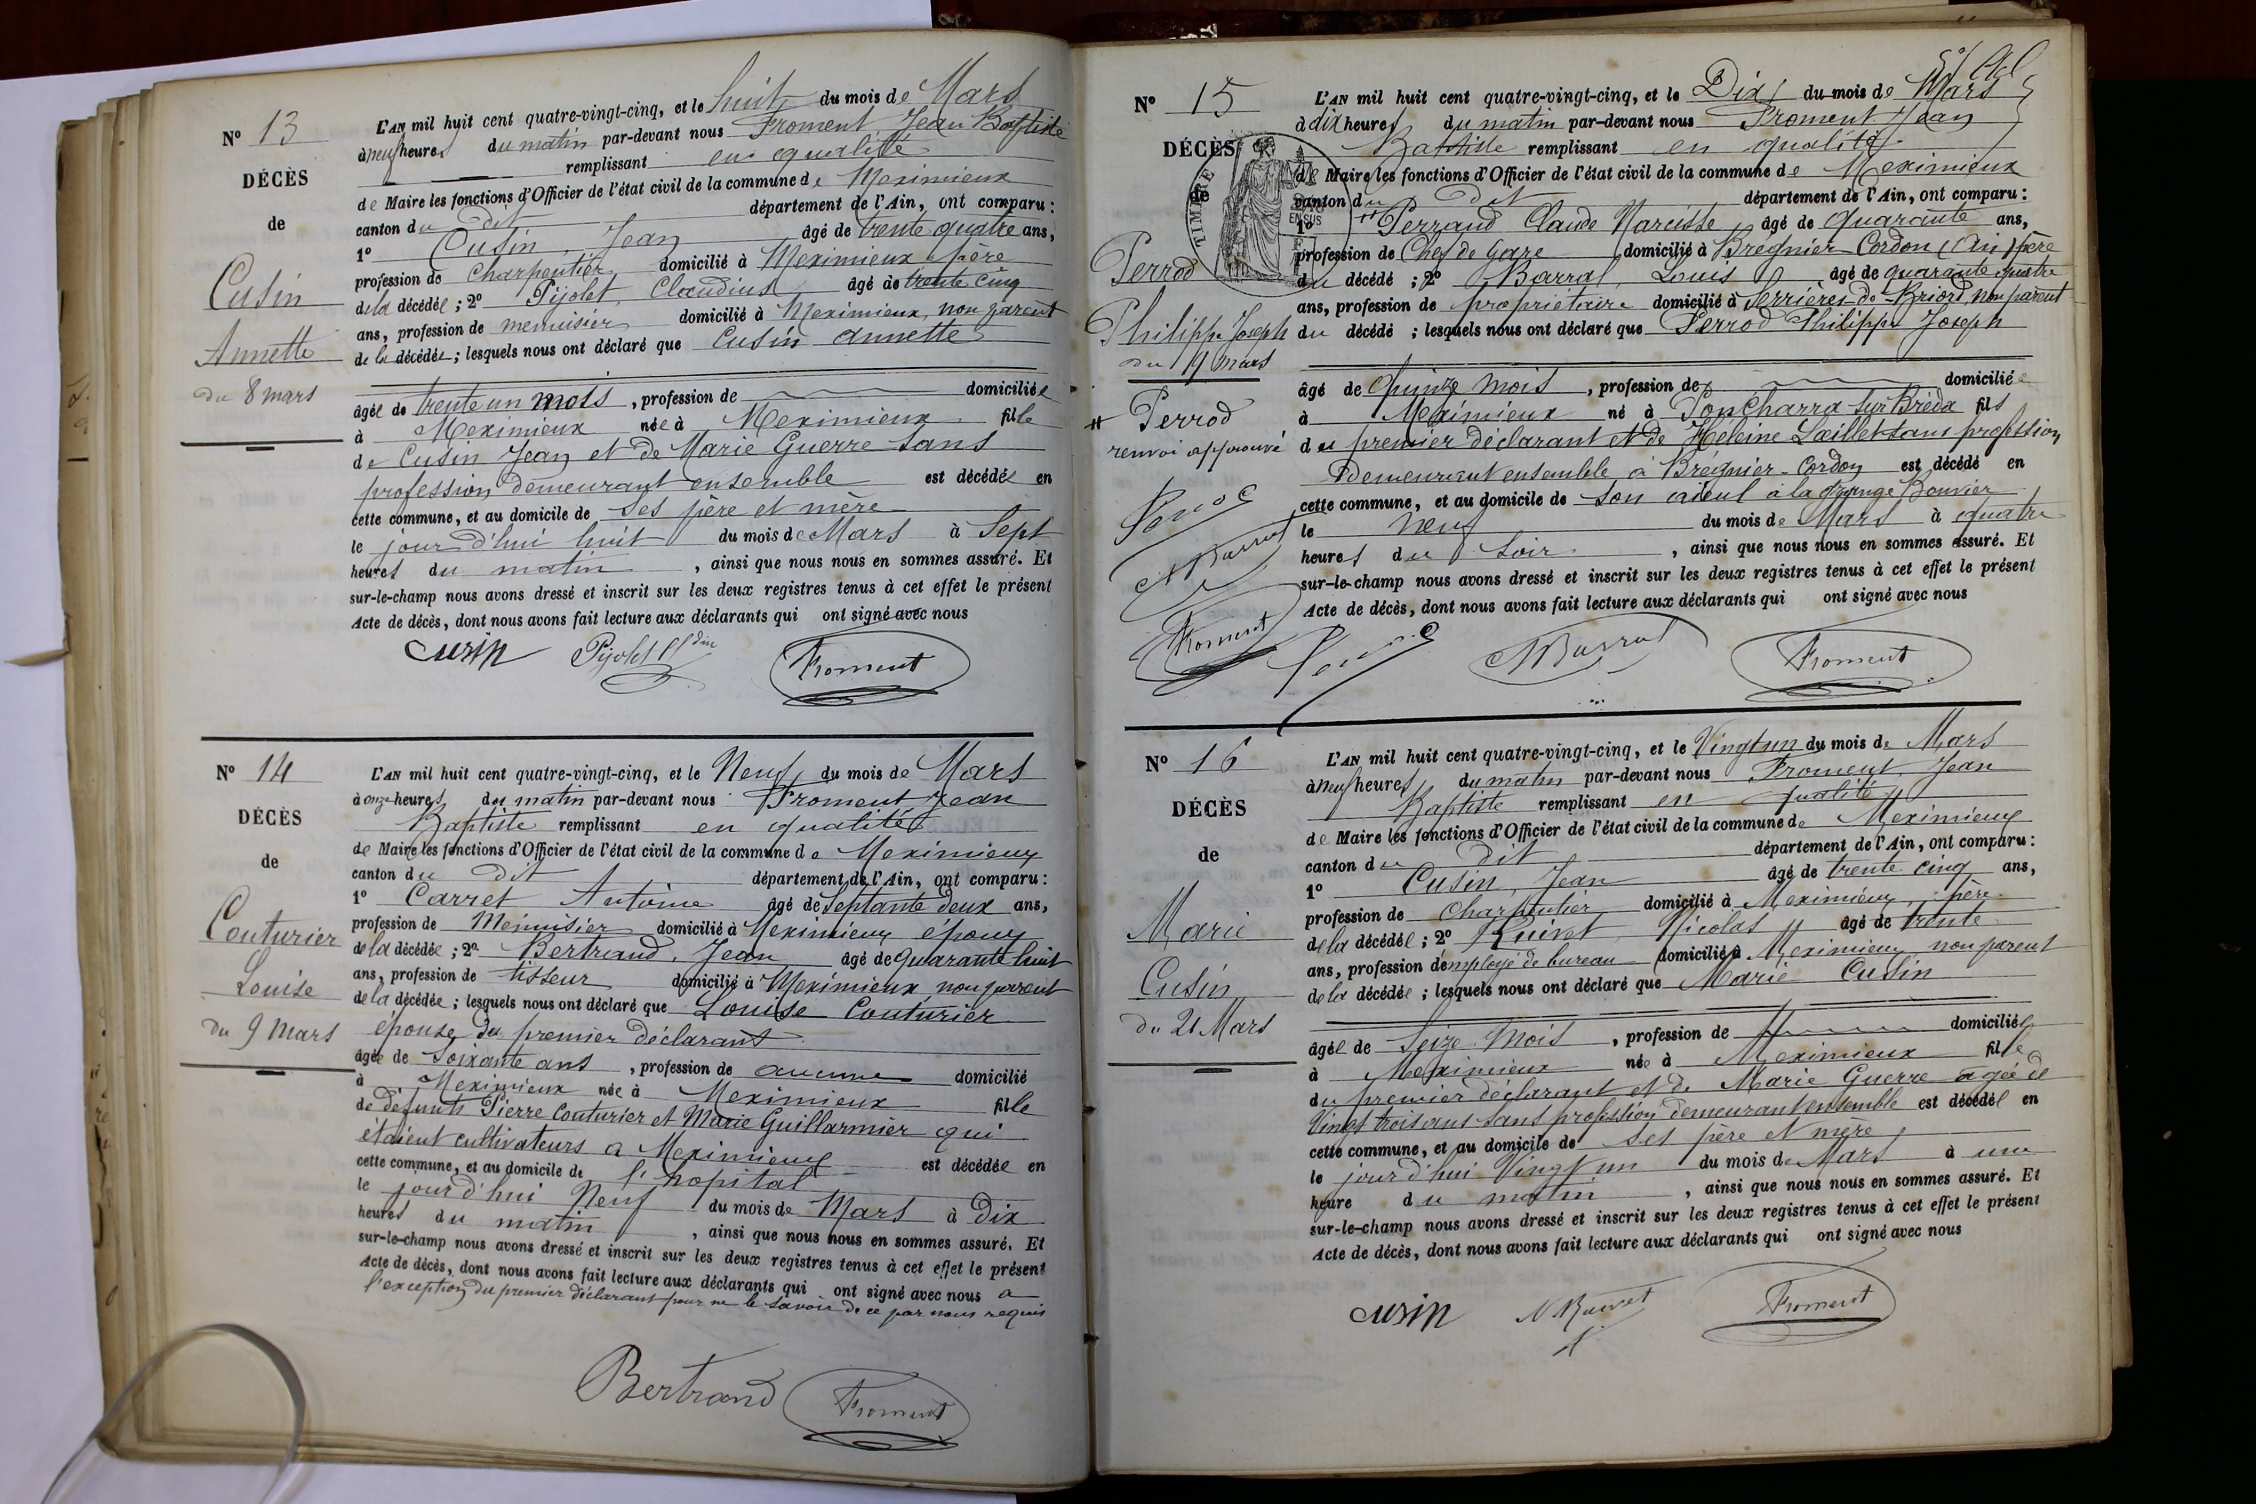 N° 13
DÉCÈS
de
Cusin
Annette
du 8 mars
L'AN mil huit cent quatre-vingt-cinq, et le huit du mois de Mars
à neuf heures du matin par-devant nous Froment Jean Baptiste
remplissant en qualité
de Maire les fonctions d'Officier de l'état civil de la commune de Meximieux
canton du dit département de l'Ain, ont comparu :
1° Cusin, Jean âgé de trente quatre ans,
profession de Charpentier domicilié à Meximieux père
de la décédée ; 2° Pijolet, Claudius âgé de trente cinq
ans, profession de menuisier domicilié à Meximieux, non parent
de la décédée ; lesquels nous ont déclaré que Cusin Annette
âgée de trente un mois, profession de domiciliée
à Meximieux née à Meximieux fille
de Cusin Jean et de Marie Guerre sans
profession demeurant ensemble est décédée en
cette commune, et au domicile de ses père et mère
le jour d'hui huit du mois de Mars à Sept
heures du matin, ainsi que nous nous en sommes assuré. Et
sur-le-champ nous avons dressé et inscrit sur les deux registres tenus à cet effet le présent
Acte de décès, dont nous avons fait lecture aux déclarants qui ont signé avec nous
Cusin Pijolet Cl^din Froment
N° 14
DÉCÈS
de
Couturier
Louise
du 9 Mars
L'AN mil huit cent quatre-vingt-cinq, et le Neuf du mois de Mars
à onze heures du matin par-devant nous Froment Jean
Baptiste remplissant en qualité
de Maire les fonctions d'Officier de l'état civil de la commune de Meximieux
canton du dit département de l'Ain, ont comparu :
1° Carret Antoine âgé de Septante deux ans,
profession de Menuisier domicilié à Meximieux époux
de la décédée ; 2° Bertrand, Jean âgé de quarante huit
ans, profession de tisseur domicilié à Meximieux non parent
de la décédée ; lesquels nous ont déclaré que Louise Couturier
épouse du premier déclarant
âgée de Soixante ans, profession de aucune domicilié
à Meximieux née à Meximieux fille
de défunts Pierre Couturier et Marie Guillarmier qui
étaient cultivateurs a Meximieux est décédée en
cette commune, et au domicile de l'hopital
le jour d'hui Neuf du mois de Mars à Dix
heures du matin, ainsi que nous nous en sommes assuré. Et
sur-le-champ nous avons dressé et inscrit sur les deux registres tenus à cet effet le présent
Acte de décès, dont nous avons fait lecture aux déclarants qui ont signé avec nous a
l'exception du premier déclarant pour ne le savoir de ce par nous requis
Bertrand Froment
N° 15
DÉCÈS
de
Perrod
Philippe Joseph
du 9 mars
Perrod
renvoi approuvé
N Barral
Froment
TIMBRE
EN SUS
L'AN mil huit cent quatre-vingt-cinq, et le Dix du mois de Mars
à dix heures du matin par-devant nous Froment Jean
Baptiste remplissant en qualité
de Maire les fonctions d'Officier de l'état civil de la commune de Meximieux
canton du dit département de l'Ain, ont comparu :
1° Perraud Claude Narcisse âgé de quarante ans,
profession de Chef de Gare domicilié à Brégnier Cordon (Ain) père
du décédé ; 2° Barral, Louis âgé de quarante quatre
ans, profession de propriétaire domicilié à Serrières-de-Briord, non parent
du décédé ; lesquels nous ont déclaré que Perrod Philippe Joseph
âgé de Quinze mois, profession de domicilié
à Meximieux né à Poncharra-sur-Bréda fils
du premier déclarant et de Héleine Lœillet sans profession
demeurant ensemble à Brégnier-Cordon est décédé en
cette commune, et au domicile de son aïeul à la Grange Bouvier
le neuf du mois de Mars à quatre
heures du Soir, ainsi que nous nous en sommes assuré. Et
sur-le-champ nous avons dressé et inscrit sur les deux registres tenus à cet effet le présent
Acte de décès, dont nous avons fait lecture aux déclarants qui ont signé avec nous
N Barral Froment
N° 16
DÉCÈS
de
Marie
Cusin
du 21 Mars
L'AN mil huit cent quatre-vingt-cinq, et le Vingt un du mois de Mars
à neuf heures du matin par-devant nous Froment, Jean
Baptiste remplissant en qualité
de Maire les fonctions d'Officier de l'état civil de la commune de Meximieux
canton du dit département de l'Ain, ont comparu :
1° Cusin, Jean âgé de trente cinq ans,
profession de Charpentier domicilié à Meximieux, père
de la décédée ; 2° Nicolas âgé de trente
ans, profession d'employé de bureau domicilié à Meximieux non parent
de la décédée ; lesquels nous ont déclaré que Marie Cusin
âgée de Seize Mois, profession de domiciliée
à Meximieux née à Meximieux fille
du premier déclarant et de Marie Guerre agée de
Vingt trois ans sans profession demeurant ensemble est décédée en
cette commune, et au domicile de ses père et mère
le jour d'hui Vingt un du mois de Mars à une
heure du matin, ainsi que nous nous en sommes assuré. Et
sur-le-champ nous avons dressé et inscrit sur les deux registres tenus à cet effet le présent
Acte de décès, dont nous avons fait lecture aux déclarants qui ont signé avec nous
Cusin Froment